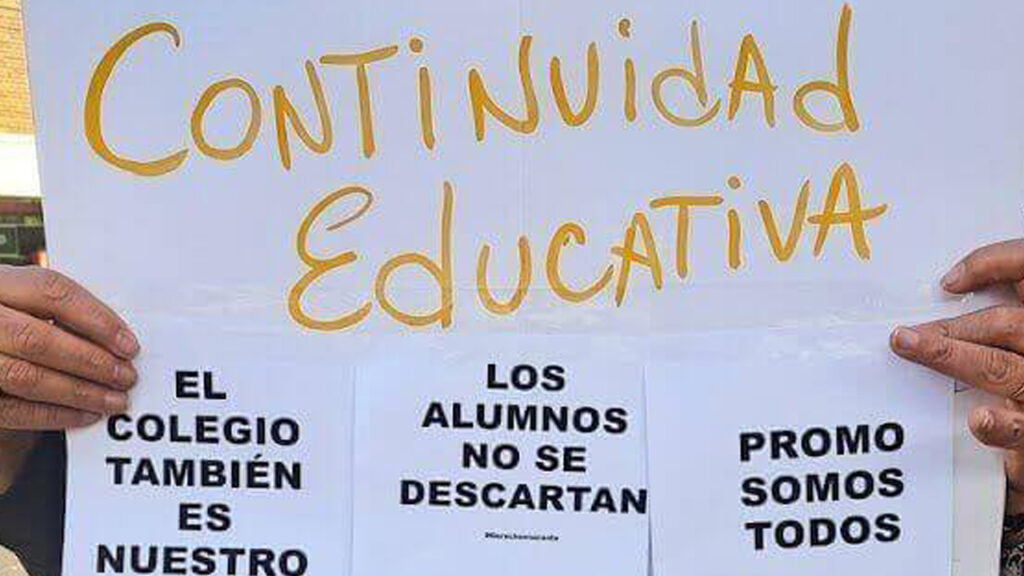 CONTINUIDAD
EDUCATIVA
EL
COLEGIO
TAMBIÉN
ES
NUESTRO
LOS
ALUMNOS
NO SE
DESCARTAN
PROMO
SOMOS
TODOS